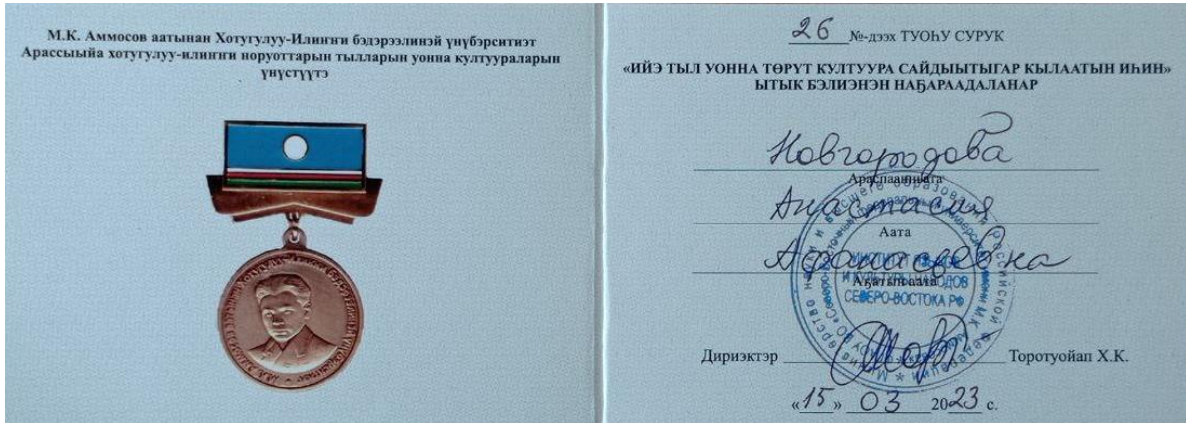 М.К. Аммосов аатынан Хотугулуу-Илиҥҥи бэдэрээлинэй үнүбэрситиэт
Арассыыйа хотугулуу-илиҥҥи норуоттарын тылларын уонна култуураларын
үнүстүүтэ
26 №-дээх ТУОҺУ СУРУК
«ИЙЭ ТЫЛ УОННА ТӨРҮТ КУЛТУУРА САЙДЫЫТЫГАР КЫЛААТЫН ИҺИН»
ЫТЫК БЭЛИЭНЭН НАҔАРААДАЛАНАР
Новгородова
Араспаанньата
Анастасия
Аата
Афанасьевна
Аҕатын аата
ИНСТИТУТ ЯЗЫКОВ
И КУЛЬТУРЫ НАРОДОВ
СЕВЕРО-ВОСТОКА РФ
Дириэктэр Торотуойап Х.К.
«15» 03 2023 с.